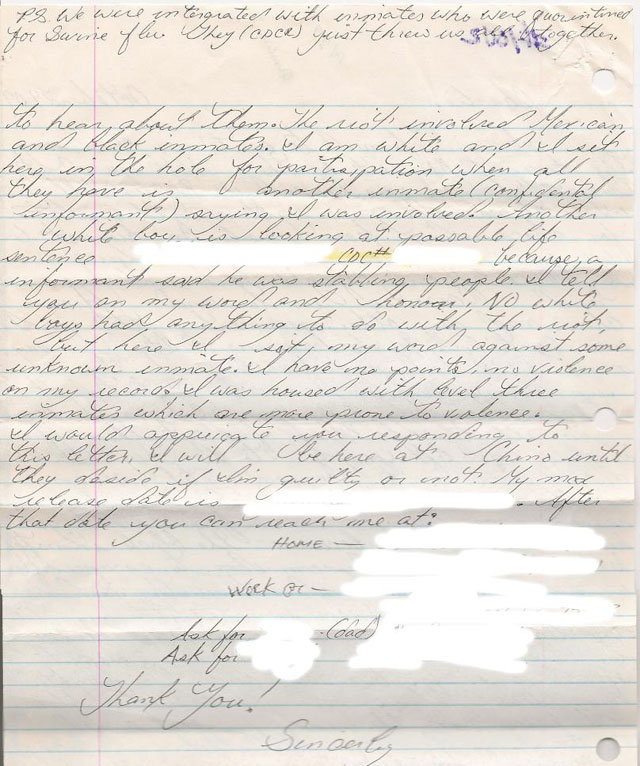 P.S. We were intergrated with inmates who were quorintined
for Swine flu. They (CDCR) just threw us together.
to hear about them. The riot involved Mexican
and black inmates. I am white and I sit
here in the hole for participation when all
they have is another inmate (confidental
informant) saying I was involved. Another
white boy is looking at possable life
sentence CDC# because a
informant said he was stabbing people. I tell
you on my word and honour, No white
boys had anything to do with the riot,
but here I sit my word against some
unknown inmate. I have no points, no violence
on my record. I was housed with level three
inmates which are more prone to violence.
I would appriciate you responding to
this letter. I will be here at Chino until
they deside if I'm guilty or not. My max
release date is . After
that date you can reach me at:
HOME —
Work or —
Ask for (dad)
Ask for
Thank You!
Sincerly